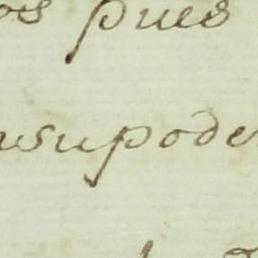 os pues
usupode